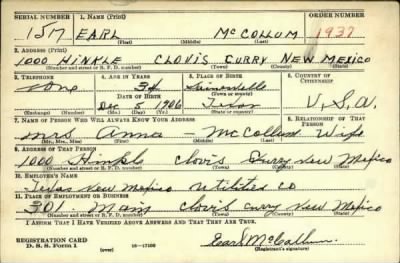 SERIAL NUMBER 1. NAME (Print) ORDER NUMBER
157 EARL McCOLLUM 1937
(First) (Middle) (Last)
2. ADDRESS (Print)
1000 HINKLE CLOVIS CURRY NEW MEXICO
(Number and street or R. F. D. number) (Town) (County) (State)
3. TELEPHONE 4. AGE IN YEARS 5. PLACE OF BIRTH 6. COUNTRY OF CITIZENSHIP
none 34
DATE OF BIRTH (Town or county)
Dec 5 1906 Texas U.S.A.
(Exchange) (Number) (Mo.) (Day) (Yr.) (State or country)
7. NAME OF PERSON WHO WILL ALWAYS KNOW YOUR ADDRESS 8. RELATIONSHIP OF THAT PERSON
Mrs Anna - McCollum Wife
(Mr., Mrs., Miss) (First) (Middle) (Last)
9. ADDRESS OF THAT PERSON
1000 Hinkle Clovis Curry New Mexico
(Number and street or R. F. D. number) (Town) (County) (State)
10. EMPLOYER'S NAME
Texas New Mexico Utilities Co
11. PLACE OF EMPLOYMENT OR BUSINESS
301 Main Clovis Curry New Mexico
(Number and street or R. F. D. number) (Town) (County) (State)
I AFFIRM THAT I HAVE VERIFIED ABOVE ANSWERS AND THAT THEY ARE TRUE.
REGISTRATION CARD
D. S. S. Form 1 (over) 16-17105 Earl McCollum
(Registrant's signature)